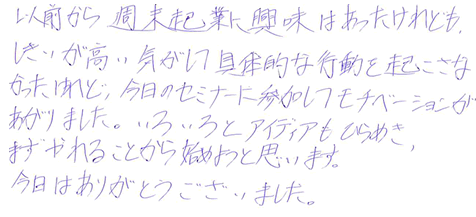 以前から週末起業に興味はあったけれども、
しきいが高い気がして具体的な行動を起こさな
かったけれど、今日のセミナーに参加してモチベーションが
あがりました。いろいろとアイディアもひらめき、
まずやれることから始めようと思います。
今日はありがとうございました。